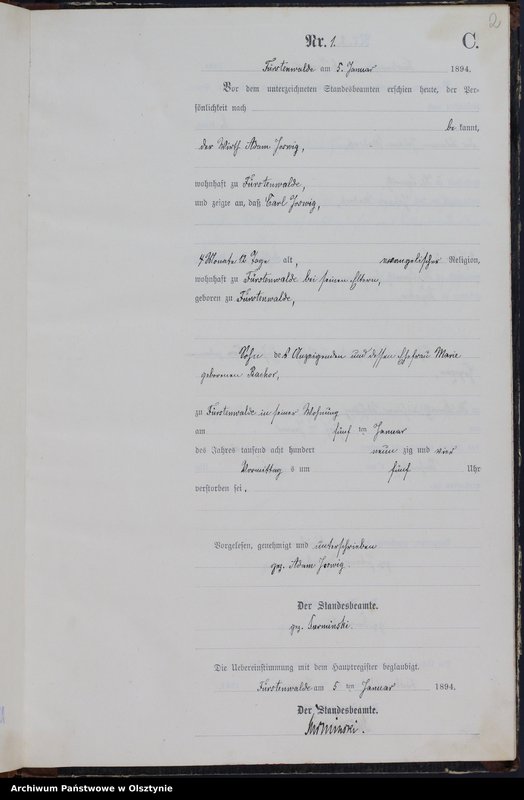 2
Nr. 1.
C.
Fürstenwalde am 5. Januar 1894.
Vor dem unterzeichneten Standesbeamten erschien heute, der Per-
sönlichkeit nach
be kannt,
der Wirth Adam
wohnhaft zu Fürstenwalde,
und zeigte an, daß Carl
4 Monate 12 Tage alt, evangelischer Religion,
wohnhaft zu Fürstenwalde bei seinen Eltern,
geboren zu Fürstenwalde,
Sohn des Anzeigenden und dessen Ehefrau Marie
geborenen
zu Fürstenwalde in seiner Wohnung
am fünf ten Januar
des Jahres tausend acht hundert neun zig und vier
Vormittag s um fünf Uhr
verstorben sei.
Vorgelesen, genehmigt und unterschrieben
gez. Adam
Der Standesbeamte.
gez.
Die Uebereinstimmung mit dem Hauptregister beglaubigt.
Fürstenwalde am 5 ten Januar 1894.
Der Standesbeamte.
Archiwum Państwowe w Olsztynie